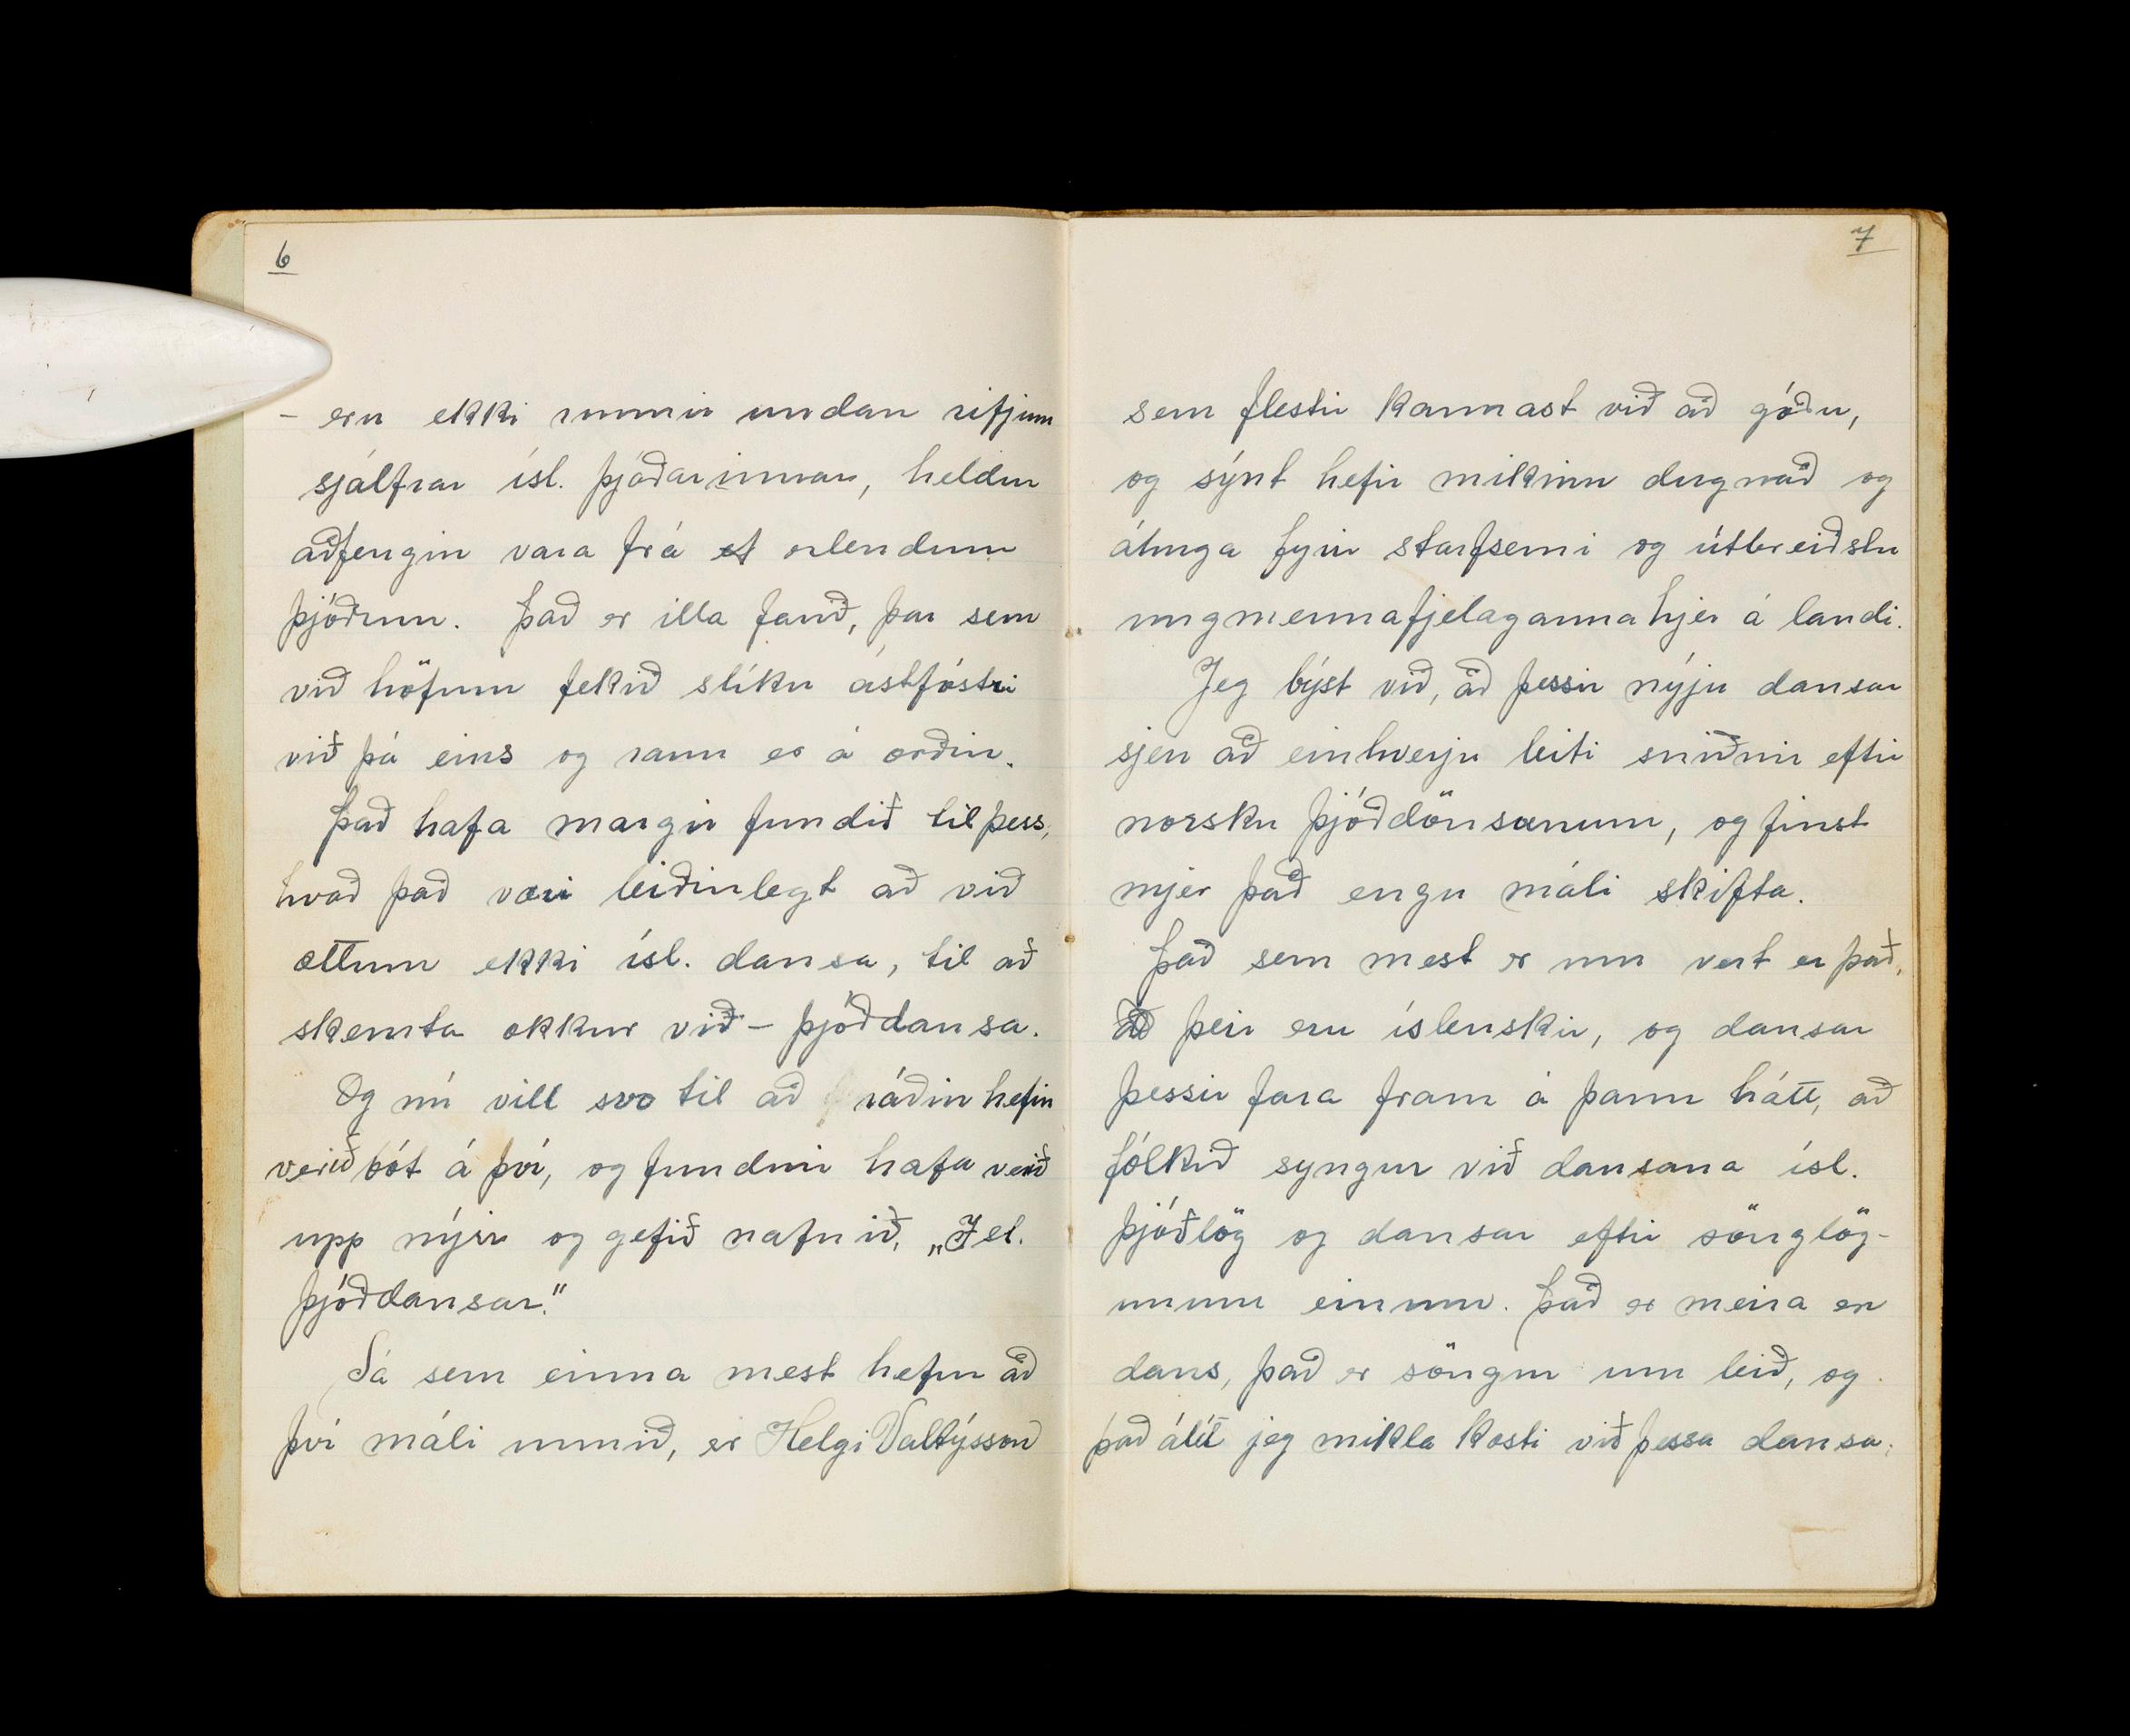 6
- eru ekki runnir undan rifjum
sjálfrar ísl. þjóðarinnar, heldur
aðfengin vara frá erlendum
þjóðum. Það er illa farið, þar sem
við höfum tekið slíku ástfóstri
við þá eins og raun er á orðin.
Það hafa margir fundið til þess,
hvað það væri leiðinlegt að við
ættum ekki ísl. dansa, til að
skemta okkur við - þjóðdansa.
Og nú vill svo til að ráðin hefir
verið bót á því, og fundnir hafa verið
upp nýir og gefið nafnið, „Ísl.
þjóðdansar."
Sá sem einna mest hefur að
því máli unnið, er Helgi Valtýsson
7
sem flestir kannast við að góðu,
og sýnt hefir mikinn dugnað og
áhuga fyrir starfsemi og útbreiðslu
ungmennafjelaganna hjer á landi.
Jeg býst við, að þessir nýju dansar
sjeu að einhverju leiti sniðnir eftir
norsku þjóðdönsunum, og finst
mjer það engu máli skifta.
Það sem mest er um vert er það,
að þeir eru íslenskir, og dansar
þessir fara fram á þann hátt, að
fólkið syngur við dansana ísl.
þjóðlög og dansar eftir sönglög-
unum einum. Það er meira en
dans, það er söngur um leið, og
það álít jeg mikla kosti við þessa dansa.